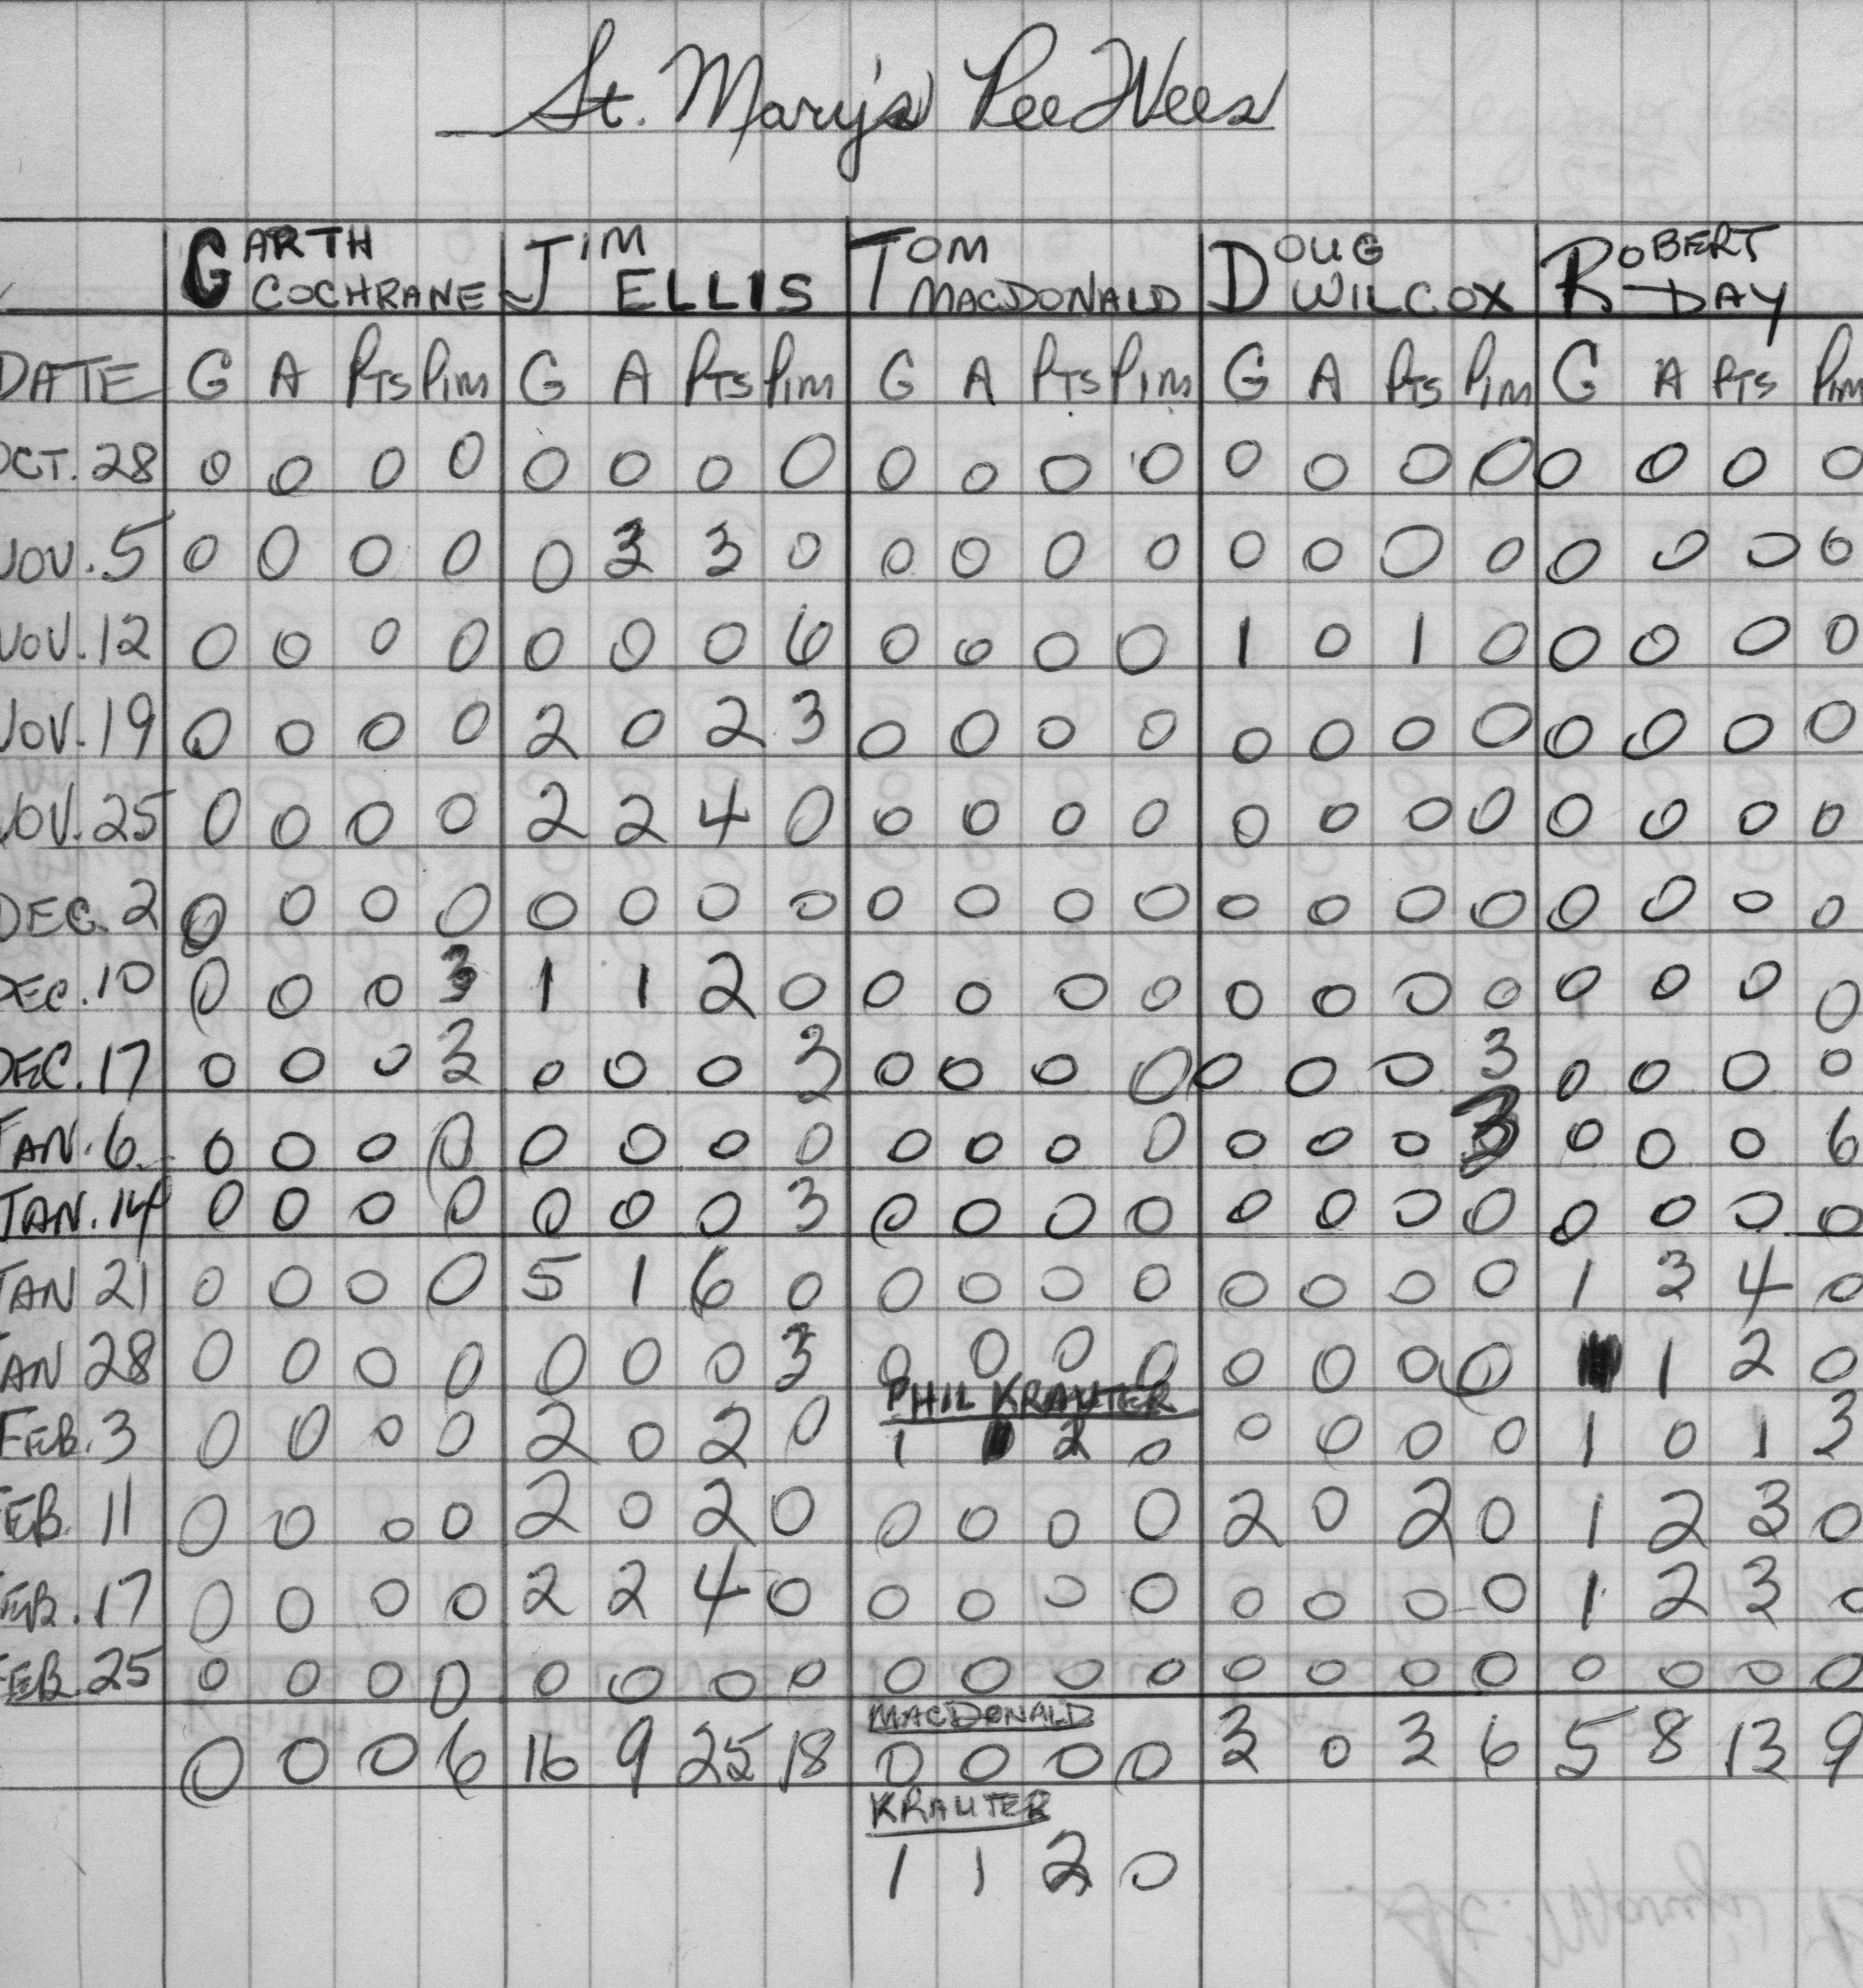 St. Mary's PeeWees
GARTH COCHRANE JIM ELLIS TOM MACDONALD DOUG WILCOX ROBERT DAY
DATE G A PTS PIM G A PTS PIM G A PTS PIM G A PTS PIM G A PTS PIM
OCT. 28 0 0 0 0 0 0 0 0 0 0 0 0 0 0 0 0 0 0 0 0
NOV. 5 0 0 0 0 0 3 3 0 0 0 0 0 0 0 0 0 0 0 0 0
NOV. 12 0 0 0 0 0 0 0 6 0 0 0 0 1 0 1 0 0 0 0 0
NOV. 19 0 0 0 0 2 0 2 3 0 0 0 0 0 0 0 0 0 0 0 0
NOV. 25 0 0 0 0 2 2 4 0 0 0 0 0 0 0 0 0 0 0 0 0
DEC. 2 0 0 0 0 0 0 0 0 0 0 0 0 0 0 0 0 0 0 0 0
DEC. 10 0 0 0 3 1 1 2 0 0 0 0 0 0 0 0 0 0 0 0 0
DEC. 17 0 0 0 3 0 0 0 3 0 0 0 0 0 0 0 3 0 0 0 0
JAN. 6 0 0 0 0 0 0 0 0 0 0 0 0 0 0 0 3 0 0 0 6
JAN. 14 0 0 0 0 0 0 0 3 0 0 0 0 0 0 0 0 0 0 0 0
JAN 21 0 0 0 0 5 1 6 0 0 0 0 0 0 0 0 0 1 3 4 0
JAN 28 0 0 0 0 0 0 0 3 0 0 0 0 0 0 0 0 1 1 2 0
PHIL KRAUTER
FEB. 3 0 0 0 0 2 0 2 0 1 1 2 0 0 0 0 0 1 0 1 3
FEB. 11 0 0 0 0 2 0 2 0 0 0 0 0 2 0 2 0 1 2 3 0
FEB. 17 0 0 0 0 2 2 4 0 0 0 0 0 0 0 0 0 1 2 3 0
FEB. 25 0 0 0 0 0 0 0 0 0 0 0 0 0 0 0 0 0 0 0 0
MACDONALD
0 0 0 6 16 9 25 18 0 0 0 0 3 0 3 6 5 8 13 9
KRAUTER
1 1 2 0